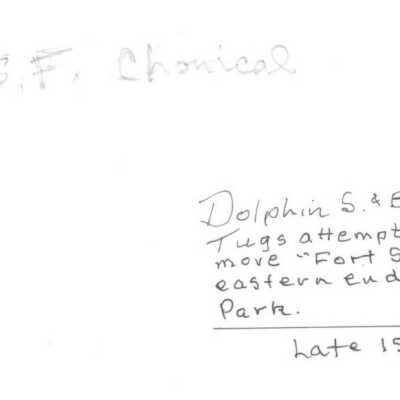 S.F. Chonical
Dolphin S. & B
Tugs attempt
move "Fort S
eastern end
Park.
Late 19